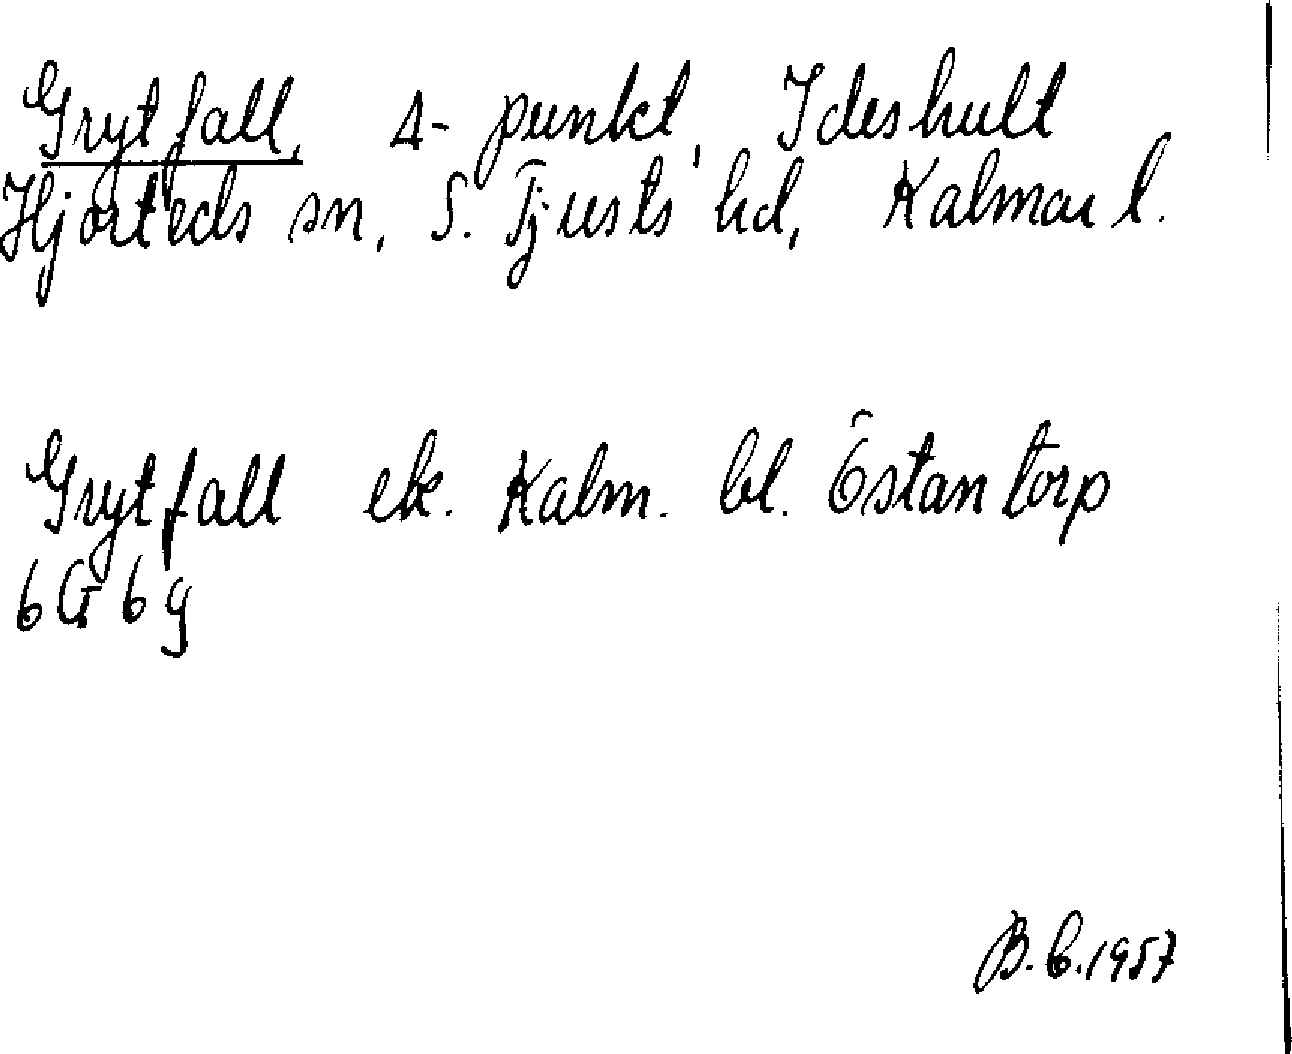 Grytfall, Δ-punkt, Ideshult
Hjorteds sn, S. Tjusts hd, Kalmar l.
Grytfall ek. Kalm. bl. Östantorp
6G 6g
B.C. 1957